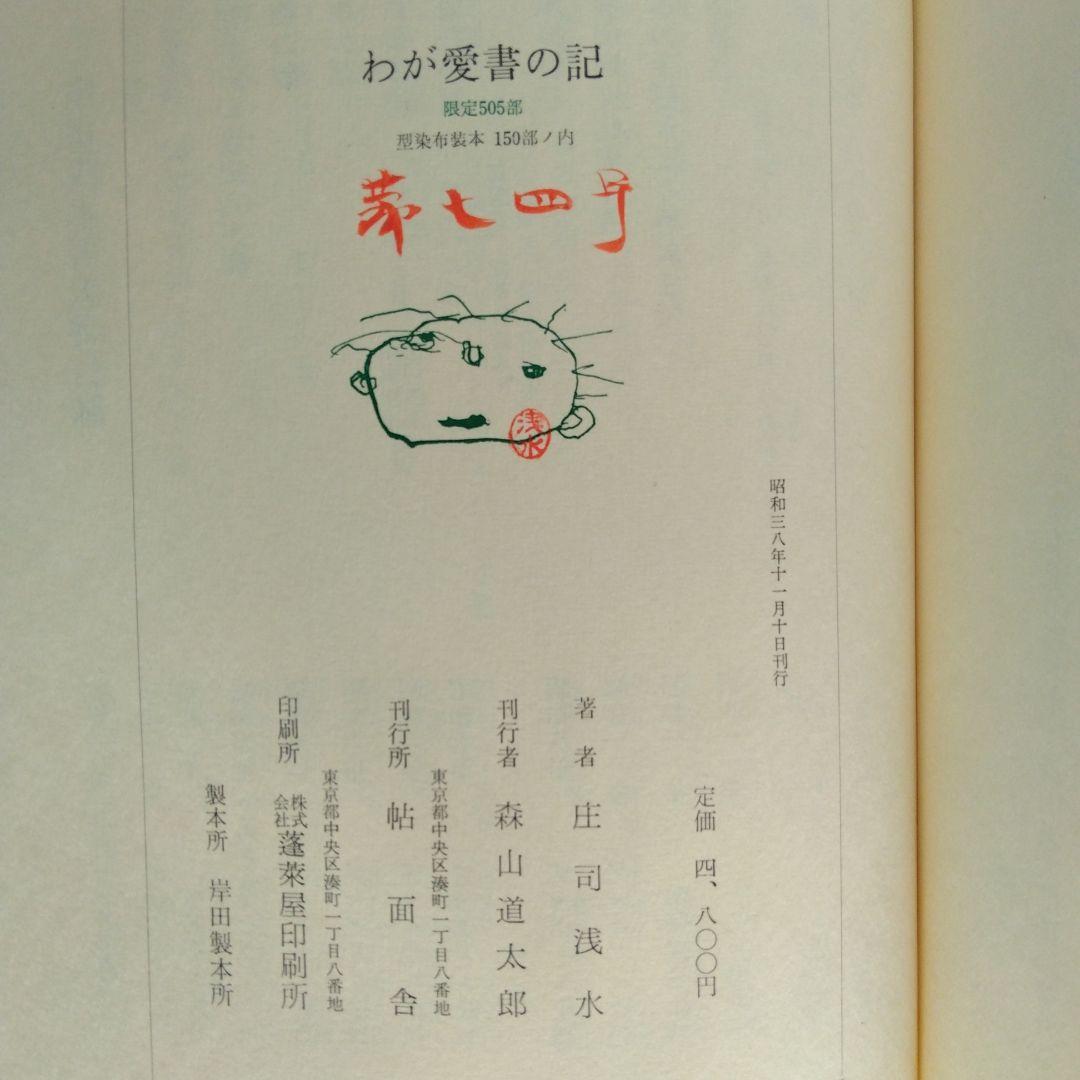 わが愛書の記
限定505部
型染布装本 150部ノ内
第七四号
浅水
昭和三八年十一月十日刊行
定価 四、八〇〇円
著者 庄司浅水
刊行者 森山道太郎
東京都中央区湊町一丁目八番地
刊行所 帖面舎
東京都中央区湊町一丁目八番地
印刷所 株式会社蓬萊屋印刷所
製本所 岸田製本所